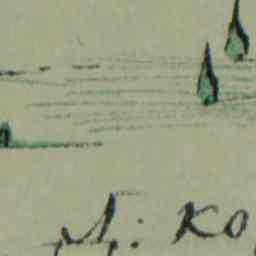 A: Ko